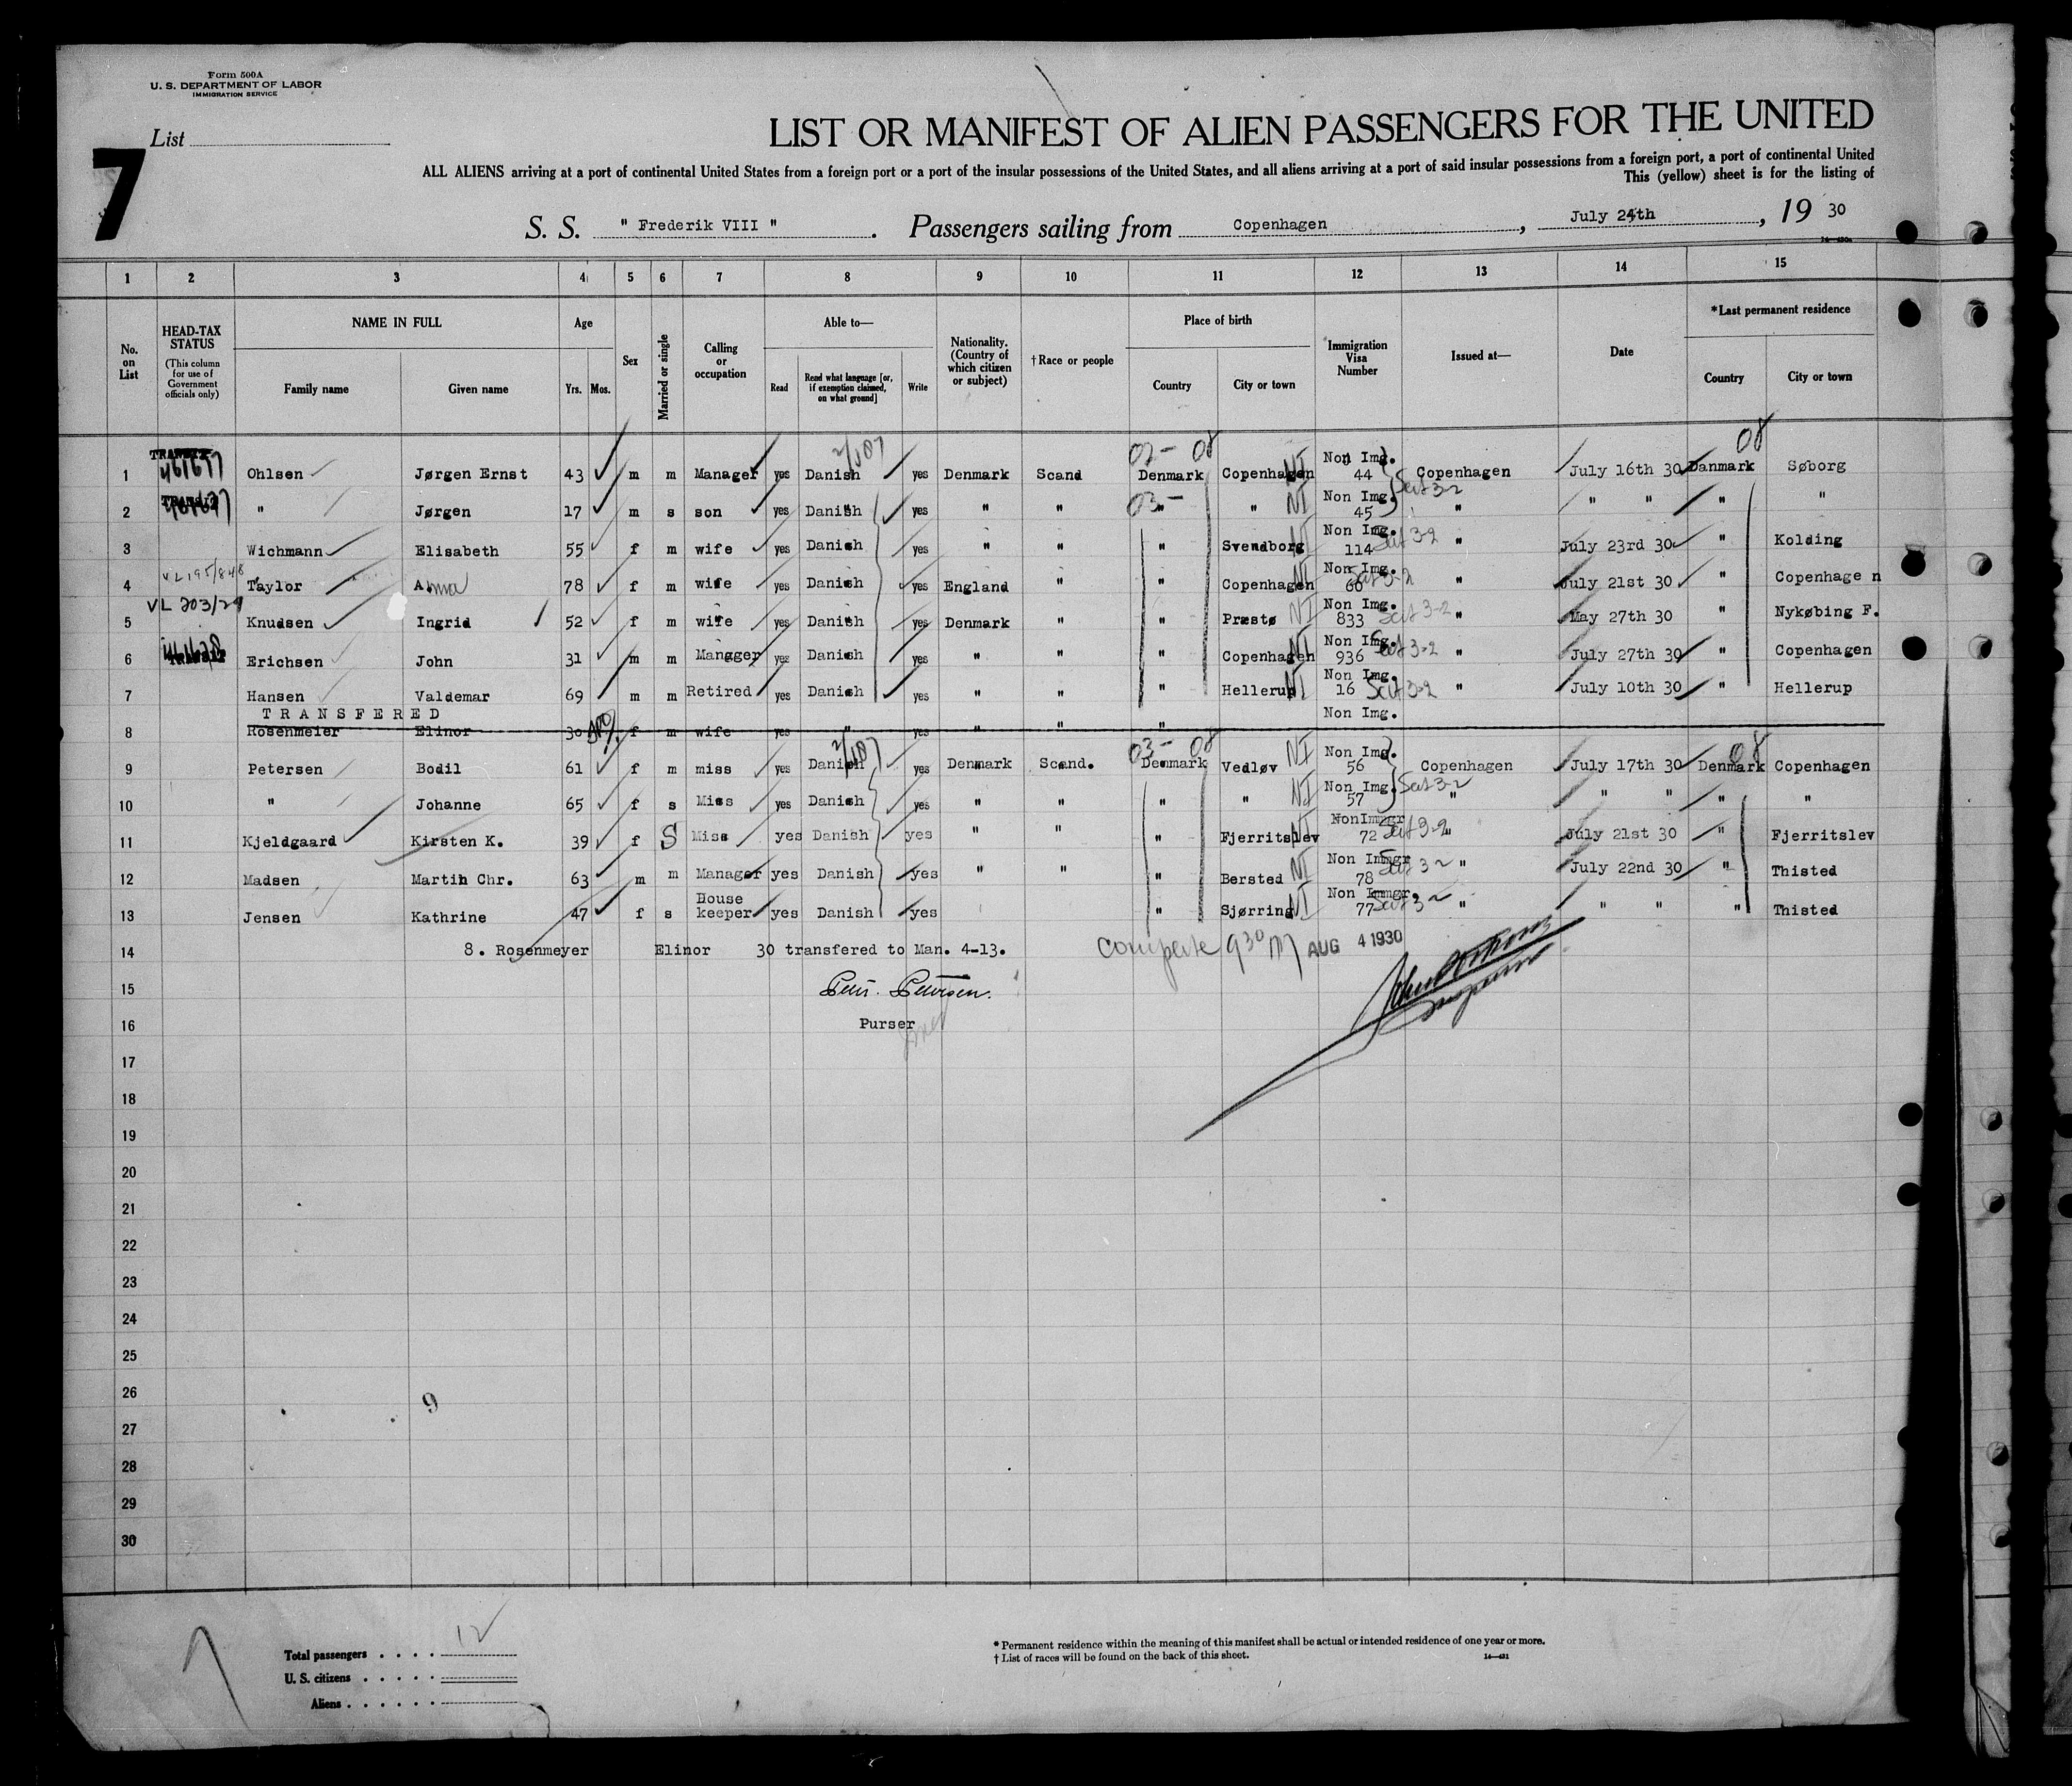 Form 500A
U. S. DEPARTMENT OF LABOR
IMMIGRATION SERVICE
List
7
LIST OR MANIFEST OF ALIEN PASSENGERS FOR THE UNITED
ALL ALIENS arriving at a port of continental United States from a foreign port or a port of the insular possessions of the United States, and all aliens arriving at a port of said insular possessions from a foreign port, a port of continental United
This (yellow) sheet is for the listing of
S. S. " Frederik VIII " . Passengers sailing from Copenhagen , July 24th , 19 30
1 2 3 4 5 6 7 8 9 10 11 12 13 14 15
No. on List
HEAD-TAX STATUS (This column for use of Government officials only)
NAME IN FULL Family name Given name
Age Yrs. Mos.
Sex
Married or single
Calling or occupation
Able to— Read Read what language [or, if exemption claimed, on what ground] Write
Nationality. (Country of which citizen or subject)
†Race or people
Place of birth Country City or town
Immigration Visa Number
Issued at—
Date
*Last permanent residence Country City or town
2/187 02- 08 08
1 TRANSIT 461677 Ohlsen Jørgen Ernst 43 m m Manager yes Danish yes Denmark Scand Denmark Copenhagen NI Non Img. 44 Copenhagen July 16th 30 Danmark Søborg
2 TRANSIT " Jørgen 17 m s son yes Danish yes " " 03- " " NI Non Img. 45 3-2 " " " " "
3 Wichmann Elisabeth 55 f m wife yes Danish yes " " " Svendborg NI Non Img. 114 3-2 " July 23rd 30 " Kolding
4 VL 195/848 Taylor Anna 78 f m wife yes Danish yes England " " Copenhagen NI Non Img. 60 3-2 " July 21st 30 " Copenhage n
5 VL 203/29 Knudsen Ingrid 52 f m wife yes Danish yes Denmark " " Præstø NI Non Img. 833 3-2 " May 27th 30 " Nykøbing F.
6 Erichsen John 31 m m Manager yes Danish yes " " " Copenhagen NI Non Img. 936 3-2 " July 27th 30 " Copenhagen
7 Hansen Valdemar 69 m m Retired yes Danish yes " " " Hellerup NI Non Img. 16 3-2 " July 10th 30 " Hellerup
TRANSFERED
8 Rosenmeier Elinor 30 f m wife yes " yes " " " Non Img.
2/187 03- 08 08
9 Petersen Bodil 61 f m miss yes Danish yes Denmark Scand. Denmark Vedløv NI Non Img. 56 Copenhagen July 17th 30 Denmark Copenhagen
10 " Johanne 65 f s Miss yes Danish yes " " " " NI Non Img. 57 3-2 " " " " "
11 Kjeldgaard Kirsten K. 39 f S Miss yes Danish yes " " " Fjerritslev NonImmgr 72 3-2 " July 21st 30 " Fjerritslev
12 Madsen Martin Chr. 63 m m Manager yes Danish yes " " " Bersted NI Non Immgr 78 3-2 " July 22nd 30 " Thisted
13 Jensen Kathrine 47 f s House keeper yes Danish yes " Sjørring NI Non Immgr. 77 3-2 " " " " Thisted
14 8. Rosenmeyer Elinor 30 transfered to Man. 4-13. 9 30 AUG 4 1930
15 Petersen.
16 Purser
17
18
19
20
21
22
23
24
25
26
9
27
28
29
30
Total passengers 12
U. S. citizens
Aliens
* Permanent residence within the meaning of this manifest shall be actual or intended residence of one year or more.
† List of races will be found on the back of this sheet. 14—431